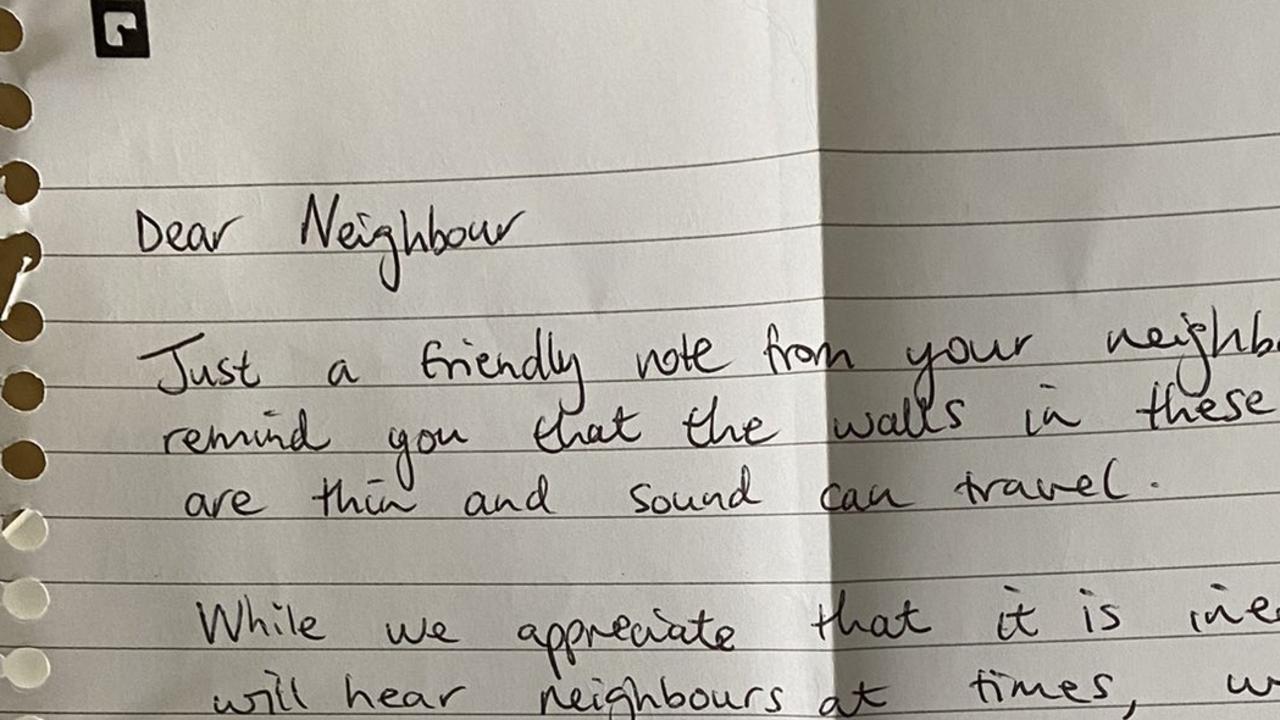 Dear Neighbour
Just a friendly note from your neighb
remind you that the walls in these
are thin and sound can travel.
While we appreciate that it is ine
will hear neighbours at times, w